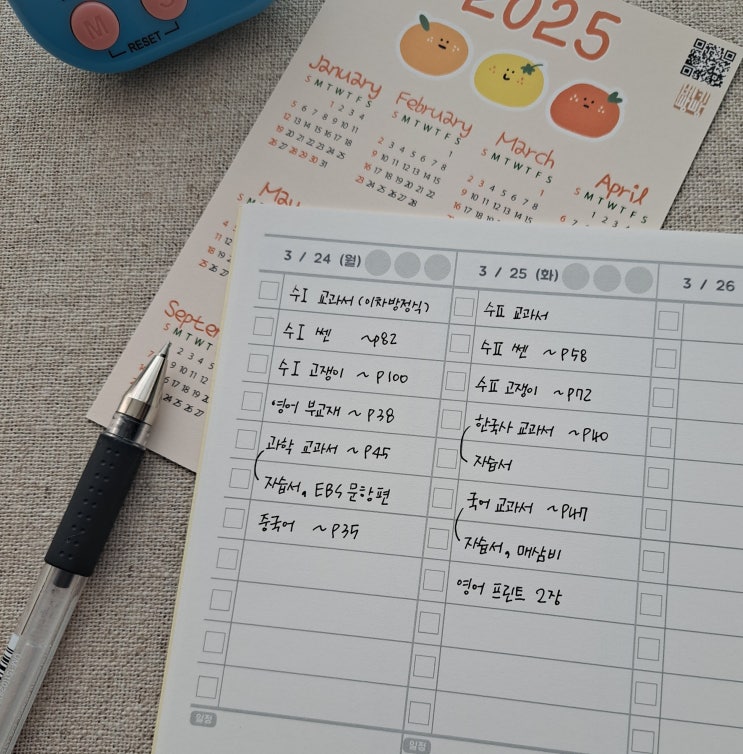 M
S
RESET
2025
January
S M T W T F S
1 2 3 4
5 6 7 8 9 10 11
12 13 14 15 16 17 18
19 20 21 22 23 24 25
26 27 28 29 30 31
February
S M T W T F S
1
2 3 4 5 6 7 8
9 10 11 12 13 14 15
16 17 18 19 20 21 22
23 24 25 26 27 28
March
S M T W T F S
1
2 3 4 5 6 7 8
9 10 11 12 13 14 15
April
S M T W T F S
1 2 3 4 5
May
Septe
S M T W T
3 / 24 (월)
수Ⅰ 교과서 (이차방정식)
수Ⅰ 쎈 ~p82
수Ⅰ 고쟁이 ~ P100
영어 부교재 ~ P38
과학 교과서 ~ P45
자습서, EBS 문항편
중국어 ~ P35
일정
3 / 25 (화)
수Ⅱ 교과서
수Ⅱ 쎈 ~ P58
수Ⅱ 고쟁이 ~P72
한국사 교과서 ~P40
자습서
국어 교과서 ~P47
자습서, 매삼비
영어 프린트 2장
일정
3 / 26